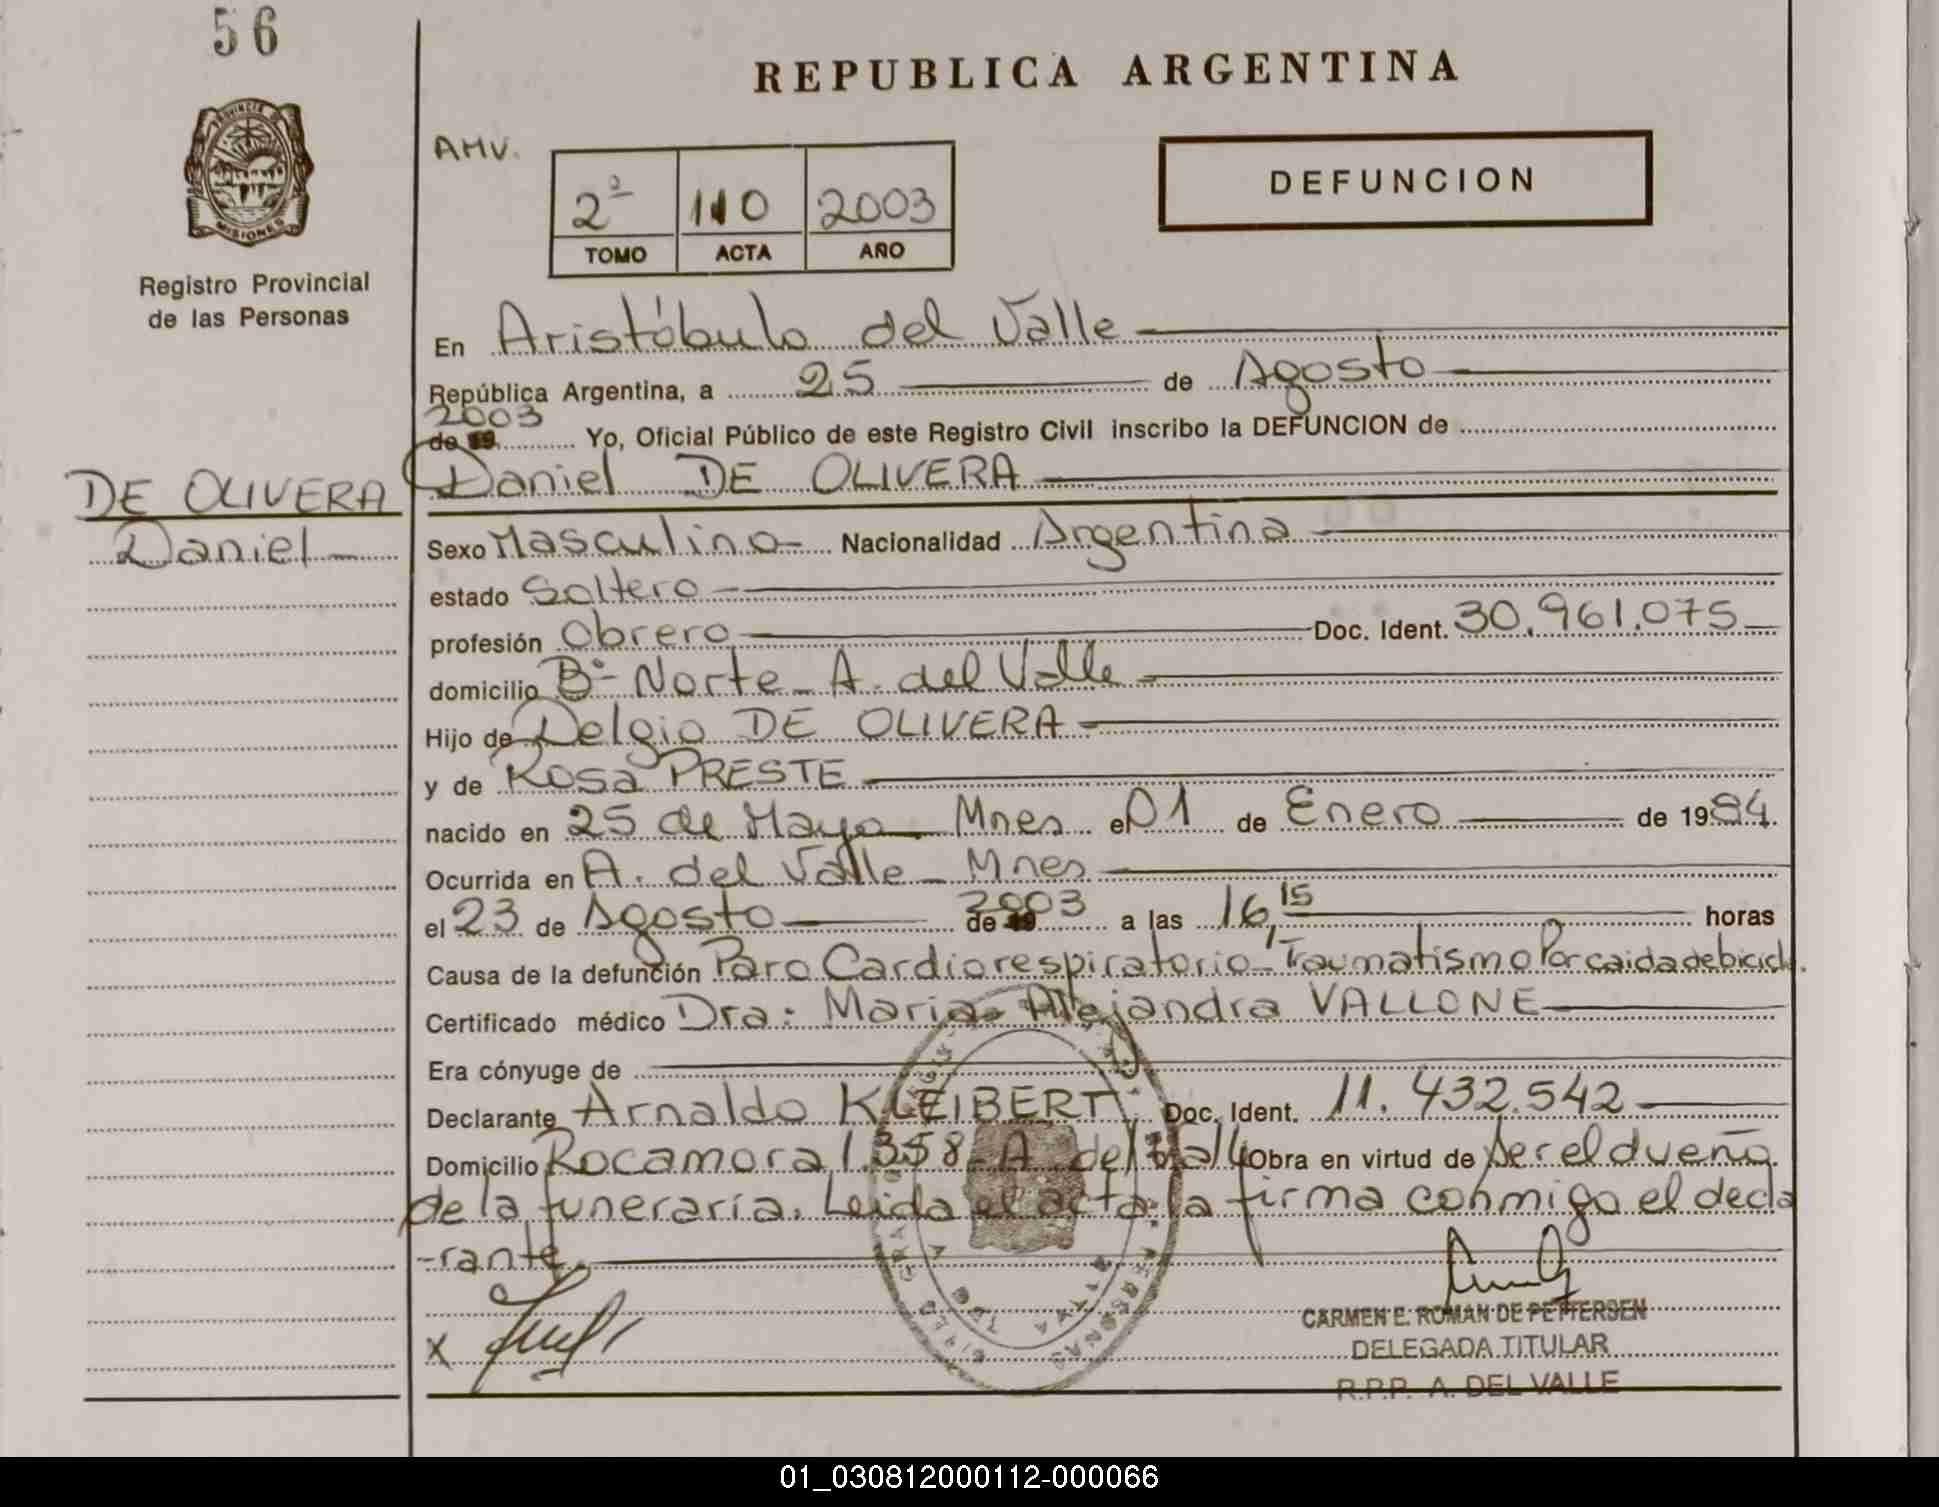 56
REPUBLICA ARGENTINA
AMV.
2º 110 2003
TOMO ACTA AÑO
DEFUNCION
PROVINCIA DE
MISIONES
Registro Provincial
de las Personas
En Aristóbulo del Valle
República Argentina, a 25 de Agosto
2003
de 19 Yo, Oficial Público de este Registro Civil inscribo la DEFUNCION de
Daniel DE OLIVERA
DE OLIVERA
Daniel
Sexo Masculino Nacionalidad Argentina
estado Soltero
profesión Obrero Doc. Ident. 30.961.075
domicilio Bº Norte A. del Valle
Hijo de Delgio DE OLIVERA
y de Rosa PRESTE
nacido en 25 de Mayo Mnes el 01 de Enero de 1984.
Ocurrida en A. del Valle - Mnes
el 23 de Agosto de 2003 a las 16,15 horas
Causa de la defunción Paro Cardiorespiratorio - Traumatismo Por caida de bicicl.
Certificado médico Dra: Maria Alejandra VALLONE
Era cónyuge de
Declarante Arnaldo KLEIBERT Doc. Ident. 11.432.542
Domicilio Rocamora 1.358 A. del Valle Obra en virtud de ser el dueño
de la funeraria. Leida el acta la firma conmigo el decla
-rante.
CARMEN E. ROMAN DE PETTERSEN
X
DELEGADA TITULAR
R.P.P. A. DEL VALLE
01_030812000112-000066